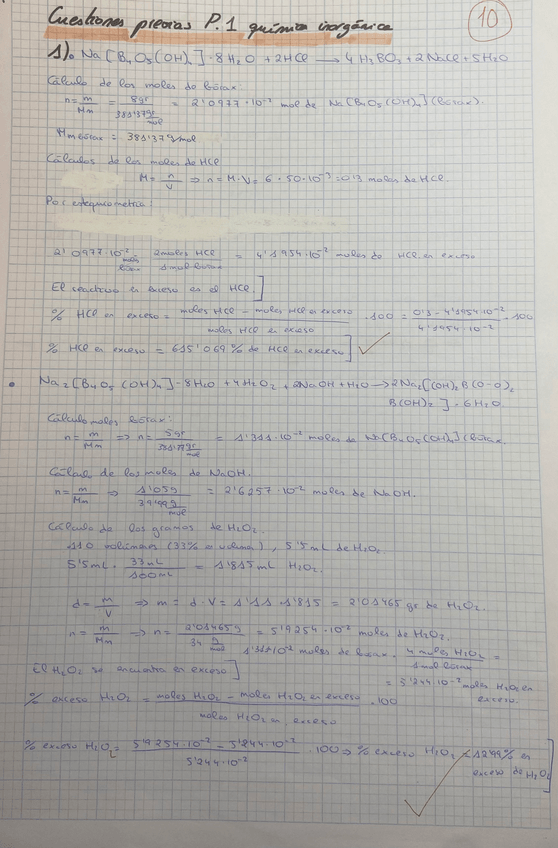 Cuestiones previas P.1 química inorgánica
10
1). Na[B₄O₅(OH)₄]·8H₂O + 2HCl → 4H₃BO₃ + 2NaCl + 5H₂O
Cálculo de los moles de bórax:
n = m/Mm = 8gr/381'37 gr/mol = 2'0977·10⁻² mol de Na[B₄O₅(OH)₄] (bórax).
Mm bórax = 381'37 g/mol
Cálculos de los moles de HCl
M = n/V ⇒ n = M·V = 6·50·10⁻³ = 0'3 moles de HCl.
Por estequiometría:
2'0977·10⁻² moles bórax 2 moles HCl/1 mol bórax = 4'1954·10⁻² moles de HCl en exceso
El reactivo en exceso es el HCl.]
% HCl en exceso = moles HCl - moles HCl en exceso/moles HCl en exceso ·100 = 0'3 - 4'1954·10⁻²/4'1954·10⁻² ·100
% HCl en exceso = 615'069% de HCl en exceso]
• Na₂[B₄O₅(OH)₄]·8H₂O + 4H₂O₂ + 2NaOH + H₂O → 2Na₂[(OH)₂B(O-O)₂
B(OH)₂]·6H₂O.
Cálculo moles bórax:
n = m/Mm ⇒ n = 5gr/381'37 gr/mol = 1'311·10⁻² moles de Na[B₄O₅(OH)₄] (bórax.
Cálculo de los moles de NaOH.
n = m/Mm ⇒ 1'05g/39'99 g/mol = 2'6257·10⁻² moles de NaOH.
Cálculo de los gramos de H₂O₂.
110 volúmenes (33% volumen), 5'5mL de H₂O₂.
5'5mL · 33mL/100mL = 1'815mL H₂O₂.
d = m/V ⇒ m = d·V = 1'11·1'815 = 2'01465 gr de H₂O₂.
n = m/Mm ⇒ n = 2'01465g/34 g/mol = 5'9254·10⁻² moles de H₂O₂.
1'311·10⁻² moles de bórax · 4 moles H₂O₂/1 mol bórax =
= 5'244·10⁻² moles H₂O₂ en exceso.
El H₂O₂ se encuentra en exceso]
% exceso H₂O₂ = moles H₂O₂ - moles H₂O₂ en exceso/moles H₂O₂ en exceso ·100
% exceso H₂O₂ = 5'9254·10⁻² - 5'244·10⁻²/5'244·10⁻² ·100 ⇒ % exceso H₂O₂ = 12'99% en exceso de H₂O₂]